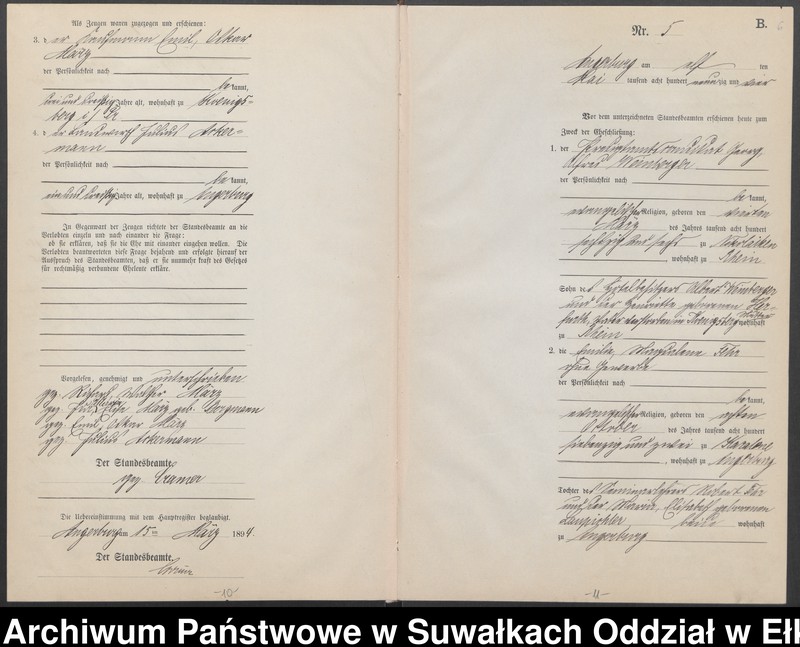 Als Zeugen waren zugezogen und erschienen:
3. der Kaufmann Emil, Oskar
März
der Persönlichkeit nach
be kannt,
dreißig Jahre alt, wohnhaft zu Koenigs-
berg i/Pr
4. der Landwirth Julius Acker-
mann
der Persönlichkeit nach
be kannt,
ein und dreißig Jahre alt, wohnhaft zu Angerburg
In Gegenwart der Zeugen richtete der Standesbeamte an die
Verlobten einzeln und nach einander die Frage:
ob sie erklären, daß sie die Ehe mit einander eingehen wollen. Die
Verlobten beantworteten diese Frage bejahend und erfolgte hierauf der
Ausspruch des Standesbeamten, daß er sie nunmehr kraft des Gesetzes
für rechtmäßig verbundene Eheleute erkläre.
Vorgelesen, genehmigt und unterschrieben
gez. Richard, Walther März
gez. März geb. Borgmann
gez. Emil, Oskar März
gez. Julius Ackermann
Der Standesbeamte.
gez. Cramer
Die Uebereinstimmung mit dem Hauptregister beglaubigt.
Angerburg am 15ten März 1894.
Der Standesbeamte.
-10-
B.
Nr. 5
Angerburg am elf ten
Mai tausend acht hundert neunzig und vier
Vor dem unterzeichneten Standesbeamten erschienen heute zum
Zweck der Eheschließung:
1. der Georg
Alfred Wemberger
der Persönlichkeit nach
be kannt,
evangelischer Religion, geboren den vierten
März des Jahres tausend acht hundert
sechszig und sechs zu Nikolaiken
, wohnhaft zu Rhein
Sohn des Hotelbesitzers Albert Wemberger
und der Henriette geborenen
Vater verstorben in Koenigsberg, Mutter wohnhaft
zu Rhein
2. die Emilie, Magdalene Fehr
ohne Gewerbe
der Persönlichkeit nach
be kannt,
evangelischer Religion, geboren den
October des Jahres tausend acht hundert
siebenzig und zwei zu Karalene
, wohnhaft zu Angerburg
Tochter des Seminarlehrers Robert Fehr
und der Maria, Elisabeth geborenen
beide wohnhaft
zu Angerburg
-11-
Archiwum Państwowe w Suwałkach Oddział w Ełk